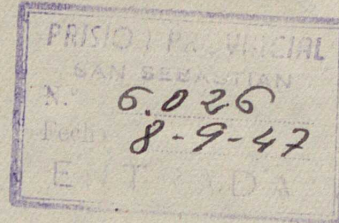 PRISION PROVINCIAL
SAN SEBASTIAN
N.º 6.026
Fecha 8-9-47
ENTRADA